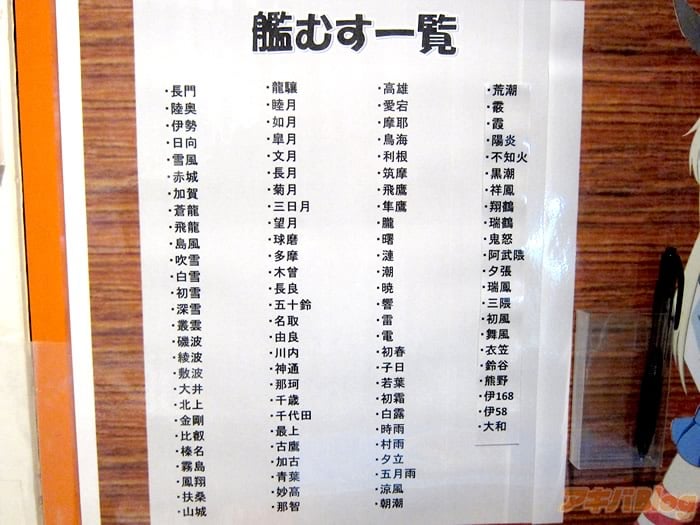 艦むす一覧
・長門
・陸奥
・伊勢
・日向
・雪風
・赤城
・加賀
・蒼龍
・飛龍
・島風
・吹雪
・白雪
・初雪
・深雪
・叢雲
・磯波
・綾波
・敷波
・大井
・北上
・金剛
・比叡
・榛名
・霧島
・鳳翔
・扶桑
・山城
・龍驤
・睦月
・如月
・皐月
・文月
・長月
・菊月
・三日月
・望月
・球磨
・多摩
・木曾
・長良
・五十鈴
・名取
・由良
・川内
・神通
・那珂
・千歳
・千代田
・最上
・古鷹
・加古
・青葉
・妙高
・那智
・高雄
・愛宕
・摩耶
・鳥海
・利根
・筑摩
・飛鷹
・隼鷹
・朧
・曙
・漣
・潮
・暁
・響
・雷
・電
・初春
・子日
・若葉
・初霜
・白露
・時雨
・村雨
・夕立
・五月雨
・涼風
・朝潮
・荒潮
・霰
・霞
・陽炎
・不知火
・黒潮
・祥鳳
・翔鶴
・瑞鶴
・鬼怒
・阿武隈
・夕張
・瑞鳳
・三隈
・初風
・舞風
・衣笠
・鈴谷
・熊野
・伊168
・伊58
・大和
アキバBlog